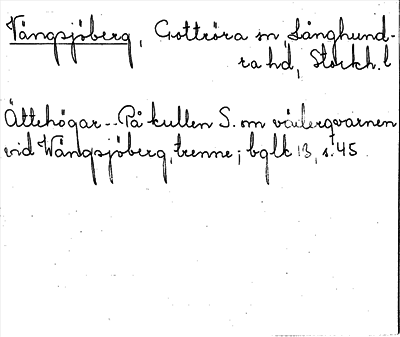 Vångsjöberg, Gottröra sn, Långhund-
ra hd, Stockh. l
Ättehögar -- På kullen S. om väderqvarnen
vid Wångsjöberg, trenne; bglk 13, s. 45